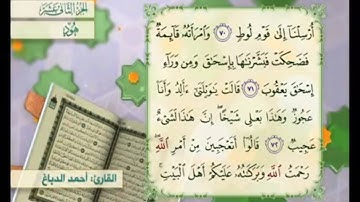 الجزء الثاني عشر
هود
أُرْسِلْنَا إِلَىٰ قَوْمِ لُوطٍ ٧٠ وَامْرَأَتُهُ قَائِمَةٌ
فَضَحِكَتْ فَبَشَّرْنَاهَا بِإِسْحَاقَ وَمِن وَرَاءِ
إِسْحَاقَ يَعْقُوبَ ٧١ قَالَتْ يَا وَيْلَتَىٰ ءَأَلِدُ وَأَنَا
عَجُوزٌ وَهَٰذَا بَعْلِي شَيْخًا إِنَّ هَٰذَا لَشَيْءٌ
عَجِيبٌ ٧٢ قَالُوا أَتَعْجَبِينَ مِنْ أَمْرِ اللَّهِ
رَحْمَتُ اللَّهِ وَبَرَكَاتُهُ عَلَيْكُمْ أَهْلَ الْبَيْتِ
القارئ: أحمد الدباغ